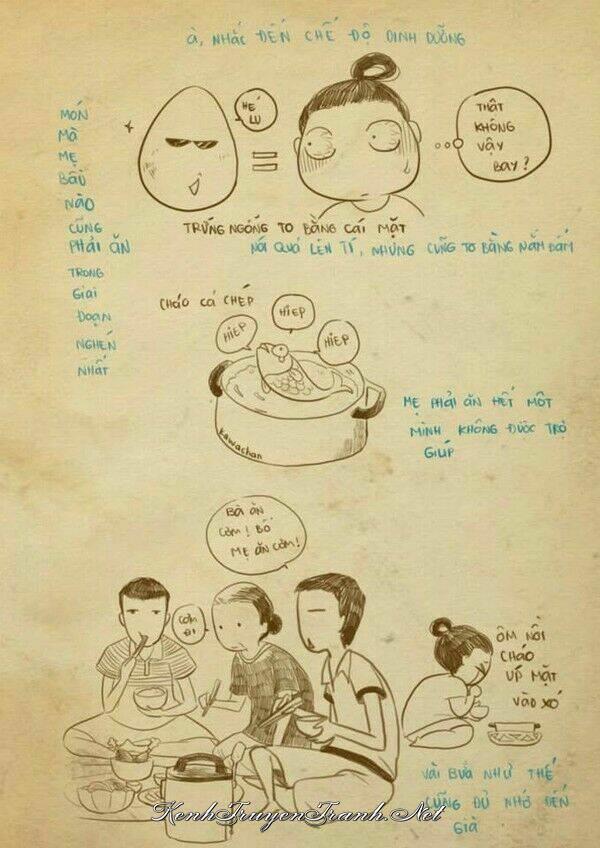 À, NHẮC ĐẾN CHẾ ĐỘ DINH DƯỠNG
MÓN
MÀ
MẸ
BẦU
NÀO
CŨNG
PHẢI ĂN
TRONG
GIAI
ĐOẠN
NGHÉN
NHẤT
HÉ
LU
THẬT
KHÔNG
VẬY
BAY?
TRỨNG NGỖNG TO BẰNG CÁI MẶT
NÓI QUÁ LÊN TÍ, NHƯNG CŨNG TO BẰNG NẮM ĐẤM
CHÁO CÁ CHÉP
HIEP
HIEP
HIEP
kawachan
MẸ PHẢI ĂN HẾT MỘT
MÌNH KHÔNG ĐƯỢC TRỢ
GIÚP
BÀ ĂN
CƠM! BỐ
MẸ ĂN CƠM!
CƠM
ĐI
ÔM NỒI
CHÁO
ÚP MẶT
VÀO XÓ
VÀI BỮA NHƯ THẾ
CŨNG ĐỦ NHỚ ĐẾN
GIÀ
KenhTruyenTranh.Net